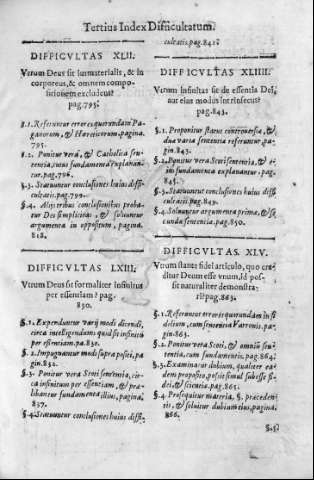 Tertius Index Difficultatum.
DIFFICVLTAS XLII.
Vtrum Deus sit immaterialis, & in
corporeus, & omnem compo-
sitionem excludens?
pag.795.
§.1. Referuntur errores quorundam Pa-
ganorum, & Hæreticorum, pagina.
795.
§.2. Ponitur vera, & Catholica sen-
tentia, cuius fundamenta explanan-
tur. pag.796.
§.3. Statuuntur conclusiones huius diffi-
cultatis. pag.799.
§.4. Aliis tribus conclusionibus proba-
tur Dei simplicitas, & soluuntur
argumenta in oppositum, pagina
818.
DIFFICVLTAS LXIII.
Vtrum Deus sit formaliter infinitus
per essentiam? pag.
830.
§.1. Expenduntur varij modi dicendi,
circa intelligendum quid sit infinitum
per essentiam. pa.830.
§.2. Impugnantur modi supra positi, pa
gin.832.
§.3. Ponitur vera Scoti sententia, cir-
ca infinitum per essentiam, & sta-
biliantur fundamenta illius, pagina.
837.
§.4. Statuuntur conclusiones huius diffi-
cultatis. pag.842.
DIFFICVLTAS XLIIII.
Vtrum infinitas sit de essentia Dei,
aut eius modus intrinsecus?
pag.843.
§.1. Proponitur status controuersiæ, &
dua varia sententia referuntur, pa-
gin.843.
§.2. Ponitur vera Scoti sententia, & ei-
us fundamenta explanantur, pag.
845.
§.3. Statuuntur conclusiones huius diffi
cultatis. pag.849.
§.4. Soluuntur argumenta prima, & se
cunda sententia. pag.850.
DIFFICVLTAS. XLV.
Vtrum stante fidei articulo, quo cre-
ditur Deum esse vnum, id pos-
sit naturaliter demonstra-
ri? pag.863.
§.1. Referuntur errores quorundam infi
delium, cum sententia Varronis, pa-
gin.863.
§.2. Ponitur vera Scoti, & omnium sen-
tentia, cum fundamentis. pag.864.
§.3. Examinatur dubium, qualiter ea-
dem propositio, possit simul subesse fi-
dei, & scientia. pag.865.
§.4. Prosequitur materia, §. præceden-
tis, & soluitur dubium eius, pagina
866.
§.5.